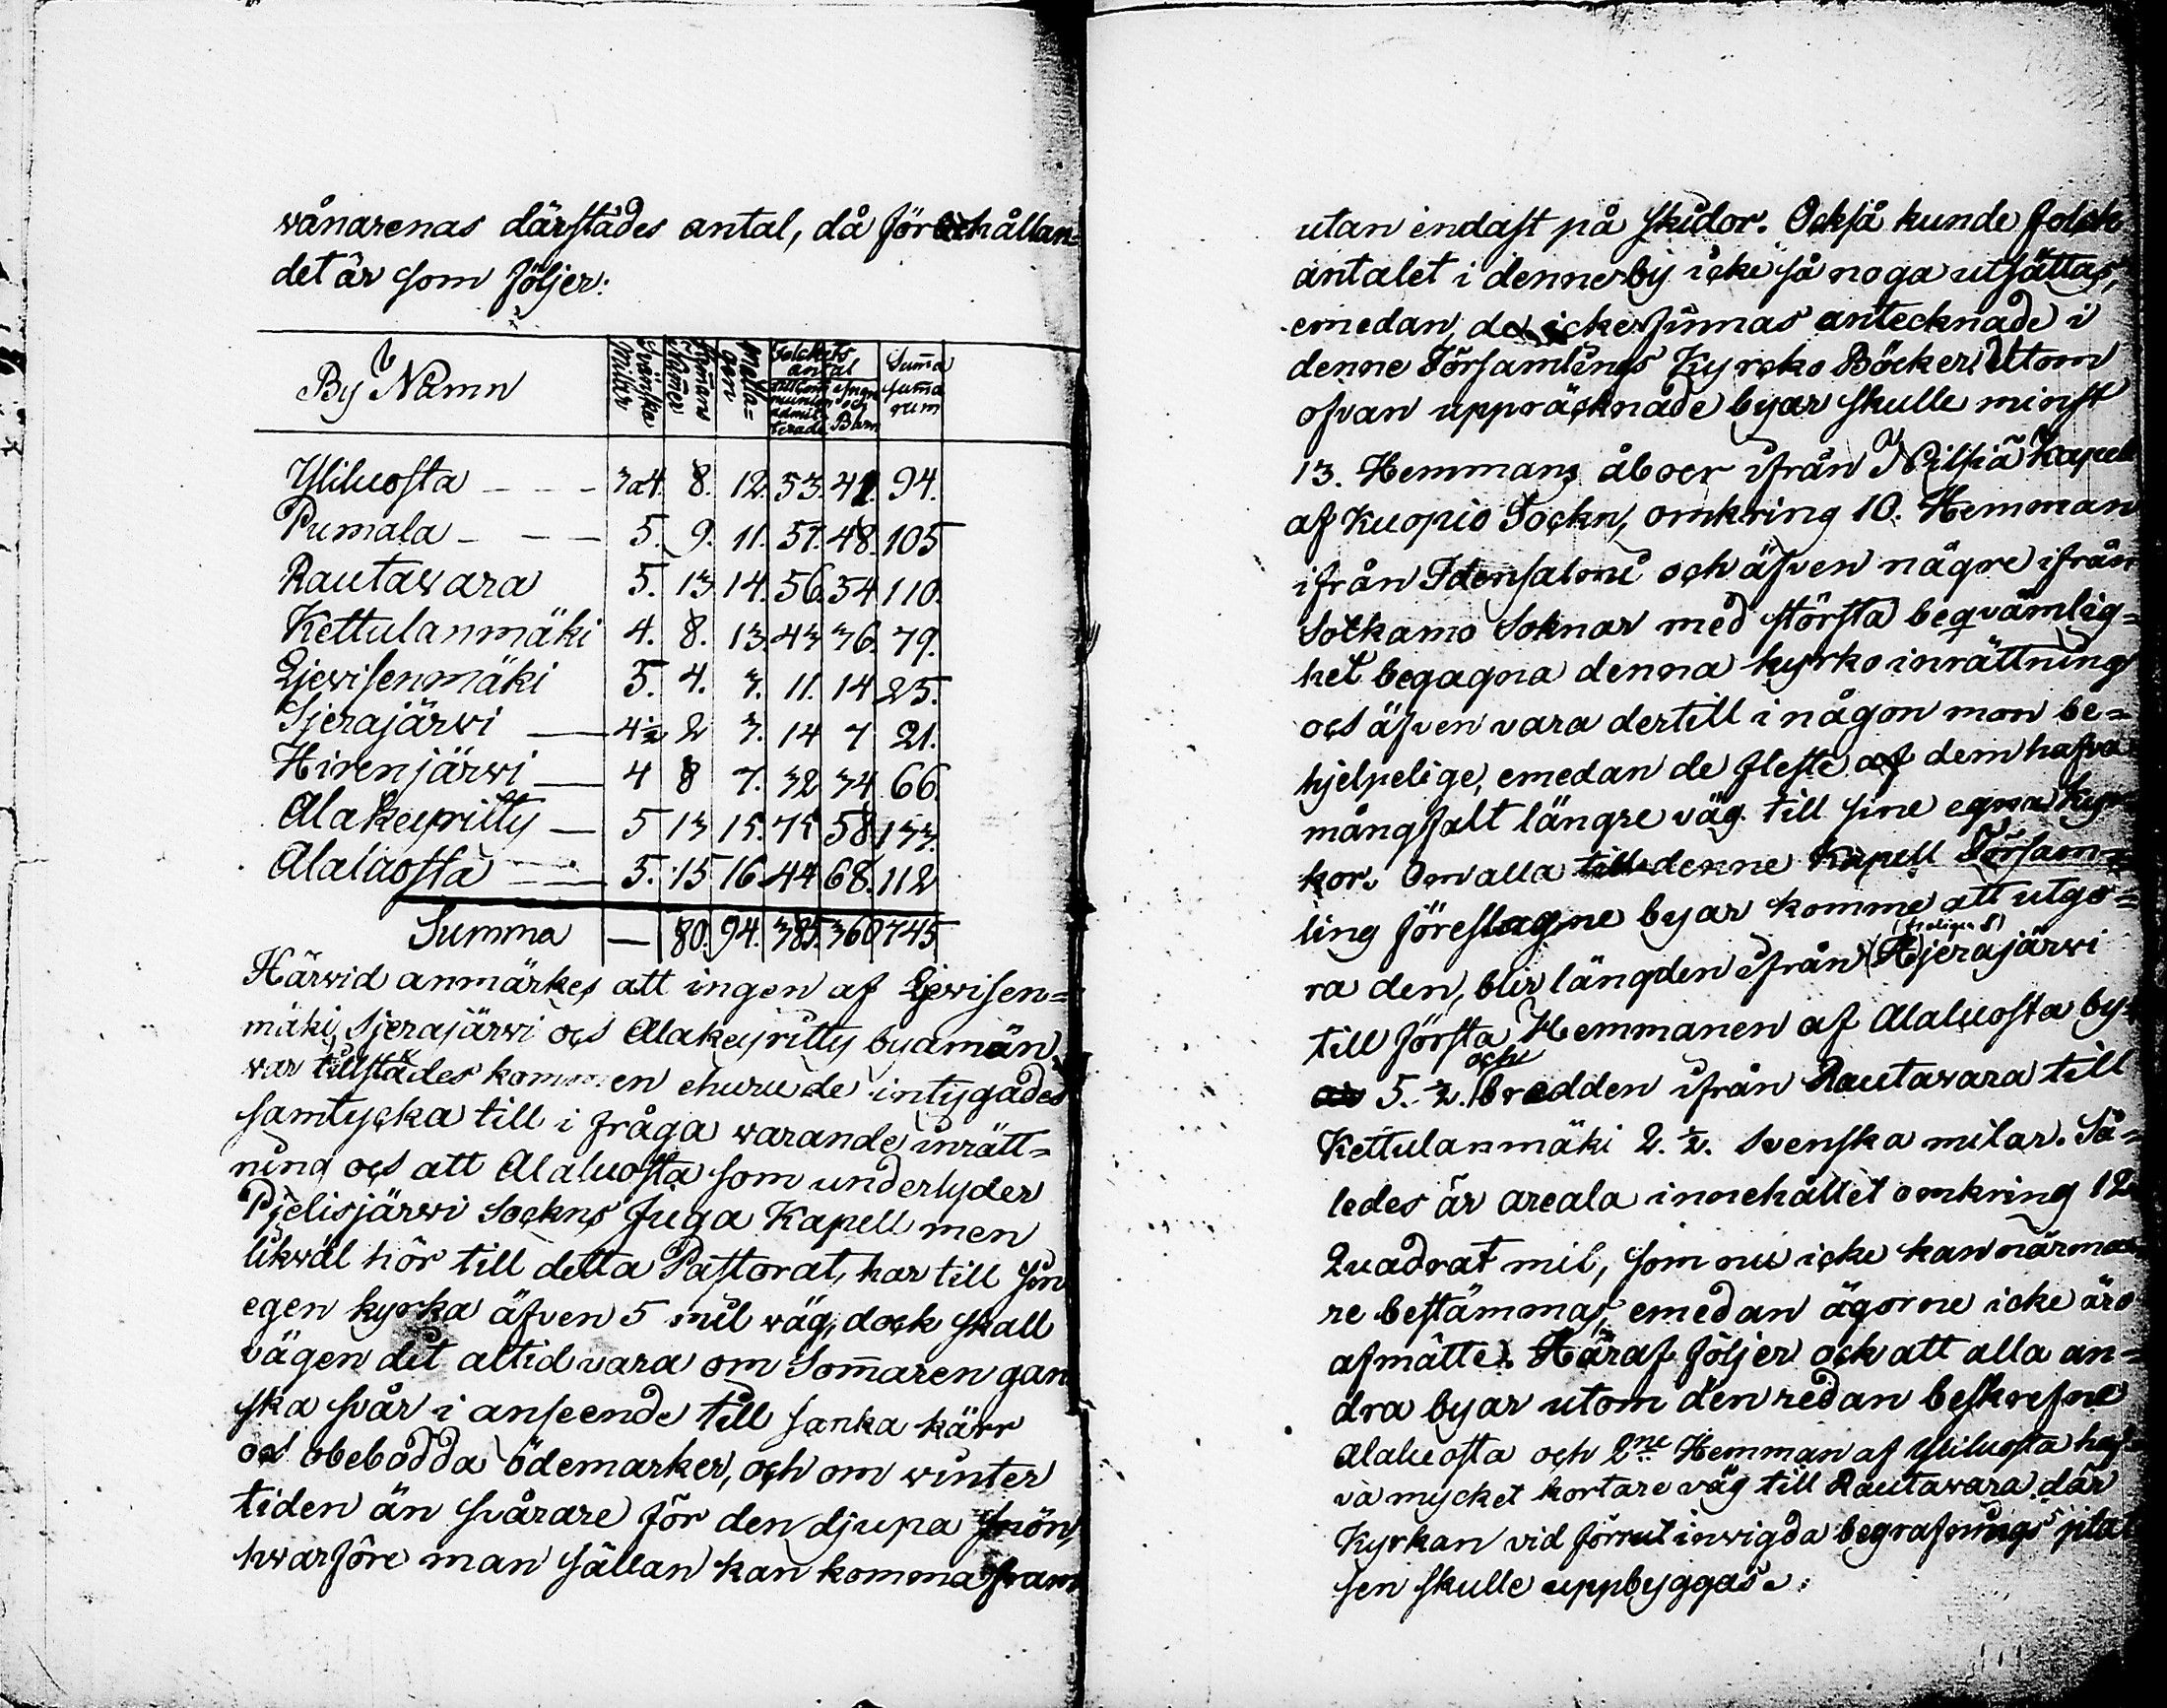 wånarenas därstädes antal, då förehållan=
det är som följer:
By Namn
Svänska Milar
Hemans Nummer
Matla=gen
Folckets antal
till Communion admitterade
ofvngre och Barn
Suma sumarum
Yliluosta - - - 3 a 4. 8. 12. 53. 41. 94.
Pumala - - - 5. 9. 11. 57. 48. 105
Rautawara 5. 13. 14. 56. 54 110.
Kettulanmäki 4. 8. 13. 43 36. 79.
Ljewisenmäki 5. 4. 3. 11. 14 25.
Sjerajärwi — 4½ 2 3. 14 7 21.
Hirenjärwi — 4 8 7. 32 34 66.
Alakeyritty — 5 13 15. 75 58. 133.
Alaluosta — 5. 15 16 44 68. 112
Summa — 80. 94. 385. 360 745
Härwid anmärkes att ingen af Ljewisen=
mäki, Sjerajärwi och Alakeyritty byamän
war tillstädes kommen churu de intygades
samtycka till i fråga warande inrätt=
ning och att Alaluosta som underlyder
Pjelisjärwi Sockns Juga Kapell men
likwäl hör till detta Pastorat, har till sin
egen kyrka äfven 5 mil wäg, dock skall
vägen dit altid vara om Somaren gan
ska svår i anseende till sanka kärr
och obebodda ödemarker, och om winter
tiden än svårare för den djupa snön,
hwarföre man sällan kan komma fram
utan endast på skidor. Också kunde folck
antalet i denne by icke så noga utsättas,
emedan de icke finnas antecknade i
denne Församlings Kyrcko Böcker. Utom
ofvan uppräcknade byar skulle minst
13. Hemmans åboer ifrån Nilsiä Kapell
af Kuopio Sockn, omkring 10. Hemman
ifrån Idensalmi och äfven någre ifrån
Sotkamo Soknar med största beqvämlig=
het begagna denna kyrko inrättning
och äfven vara dertill i någon mon be=
hjelpelige, emedan de fleste af dem hafva
mångfalt längre väg till sine egna kyr=
kor. Om alla till denne Kapell Försam=
ling föreslagne byar komme att utgö=
(troligen S)
ra den, blir längden ifrån (H)jerajärwi
till första Hemmanen af Alaluosta by
och
5. ½. bredden ifrån Rautawara till
Kettulanmäki 2. ½. Svenska milar. Så=
ledes är areala innehållet omkring 12
Quadrat mil, som nu icke kan närma=
re bestämmas, emedan ägorne icke äro
afmätte. Häraf följer ock att alla an=
dra byar utom den redan beskrefne
Alaluosta och 2ne Hemman af Yliluosta haf=
va mycket kortare väg till Rautawara där
Kyrkan vid förrut inwigda begrafnings plat
sen skulle uppbyggas.